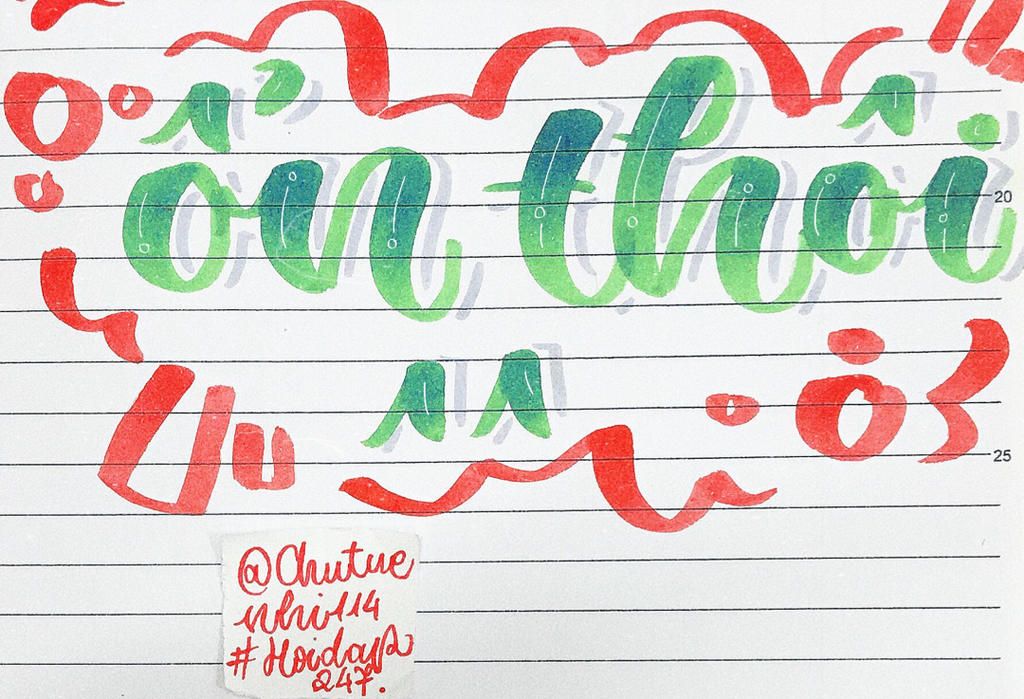 ổn thôi
20
^^
25
@Chutue
nhi114
#Hoidap
247.